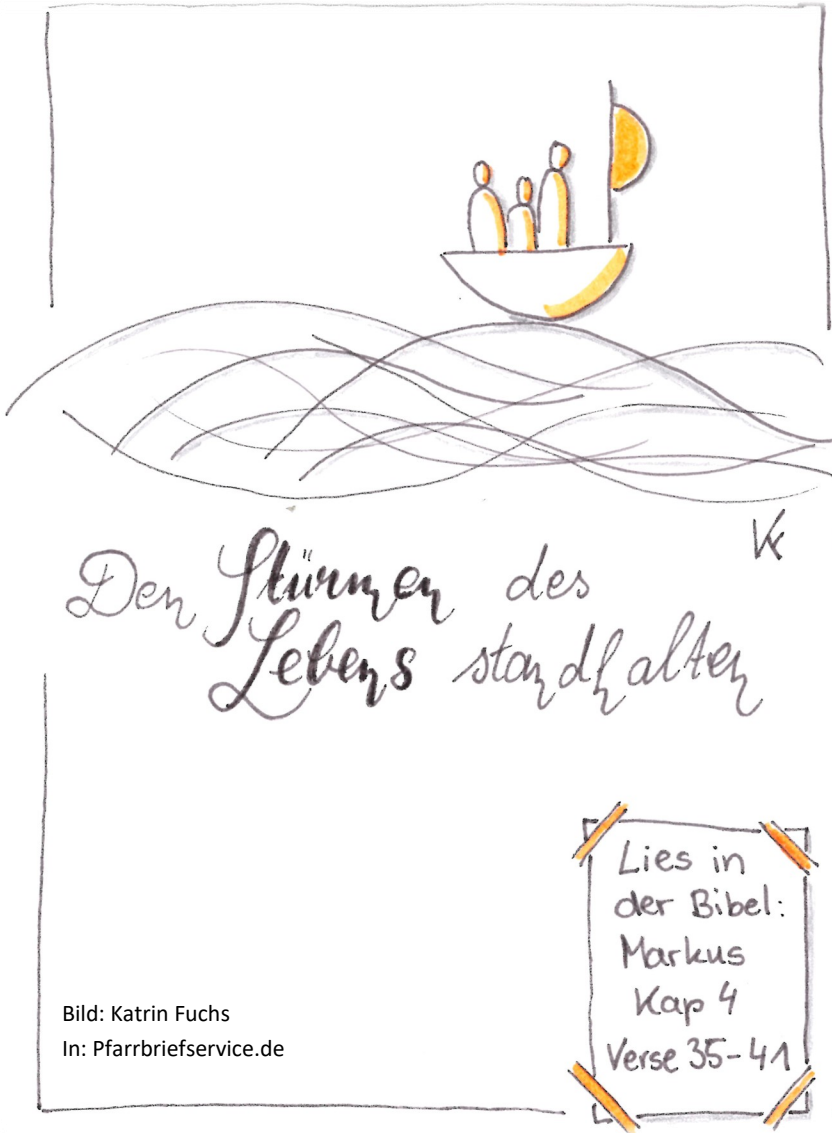 Den Stürmen des
Lebens standhalten
Lies in
der Bibel:
Markus
Kap 4
Verse 35-41
Bild: Katrin Fuchs
In: Pfarrbriefservice.de